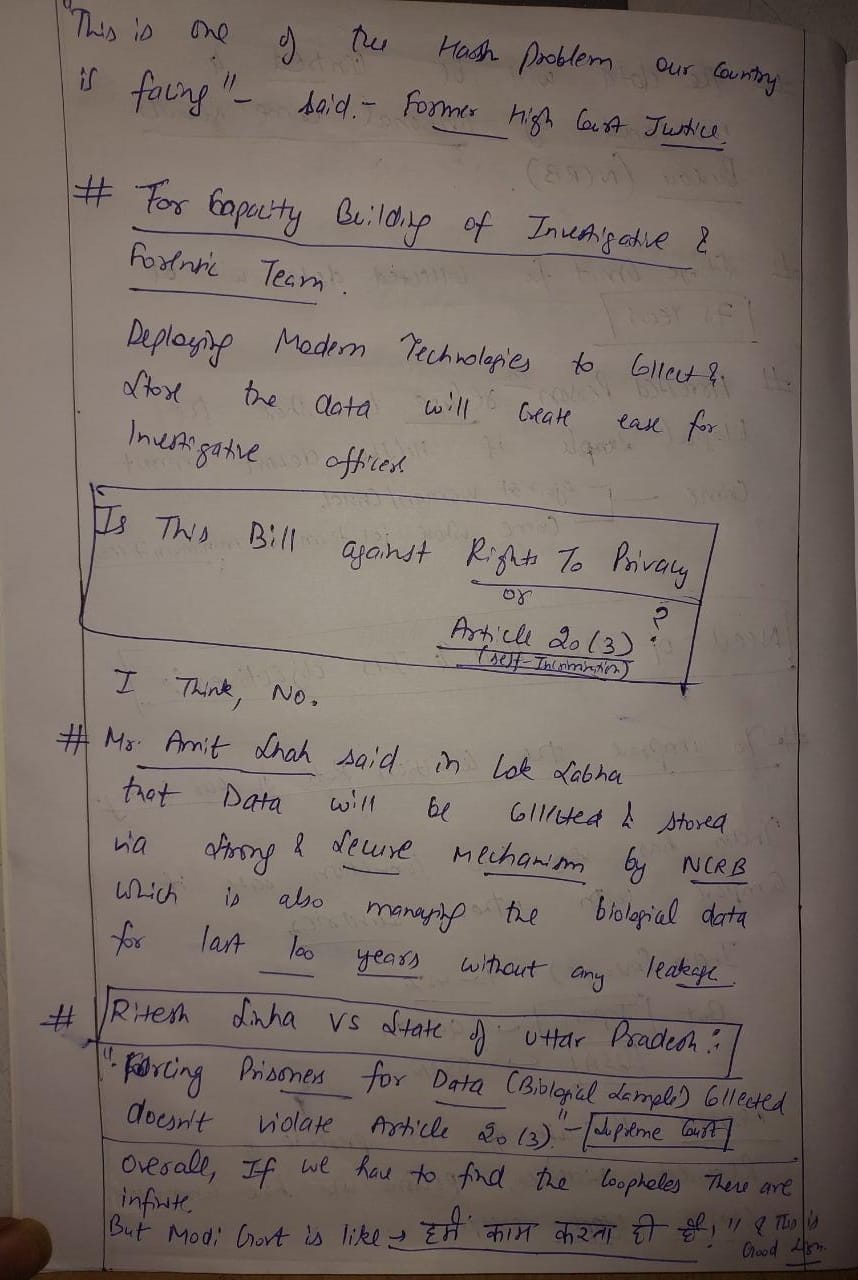 "This is one of the Harsh Problem our country
is facing" - said. - Former High Court Justice.
# For Capacity Building of Investigative &
Forensic Team.
Deploying Modern Technologies to Collect &
Store the data will Create ease for
Investigative officers
Is This Bill against Rights To Privacy
or
Article 20(3) ?
(self-Incrimination)
I Think, No.
# Mr. Amit Shah said in Lok Sabha
that Data will be Collected & stored
via Strong & Secure Mechanism by NCRB
Which is also managing the biological data
for last 100 years without any leakage.
# Ritesh Sinha VS State of Uttar Pradesh :
"Forcing Prisoners for Data (Biological Sample) Collected
doesn't violate Article 20(3)." - Supreme Court
Overall, If we have to find the loopholes There are
infinite.
But Modi Govt is like → हमें काम करना ही है! " & This is
Good Sign.